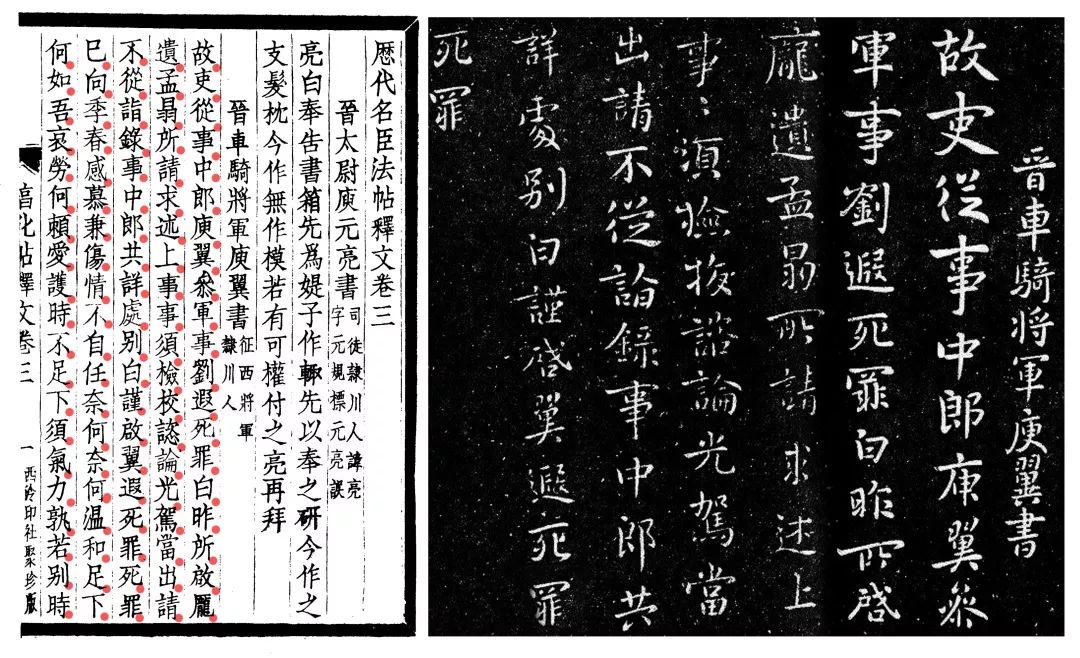 晋車騎将軍庾翼書
故吏從事中郎庾翼叅
軍事劉遐死罪白昨所啓
龐遺孟昴所請求述上
事〻須檢挍諮論光駕當
出請不從詣録事中郎共
詳處别白謹啓翼遐死罪
死罪
歷代名臣法帖釋文卷三
晉太尉庾元亮書
司徒潁川人諱亮
字元規標元亮誤
亮白奉告書箱先爲媞子作輙先以奉之研今作之
支髮枕今作無作模若有可權付之亮再拜
晉車騎將軍庾翼書
征西將軍
潁川人
故吏從事中郎庾翼叅軍事劉遐死罪白昨所啟龎
遺孟昴所請求述上事事須檢校諮論光駕當出請
不從詣錄事中郎共詳處别白謹啟翼遐死罪死罪
巳向季春感慕兼傷情不自任奈何奈何温和足下
何如吾哀勞何頼愛護時不足下須氣力孰若别時
化帖釋文卷三 一 西泠印社聚珍版